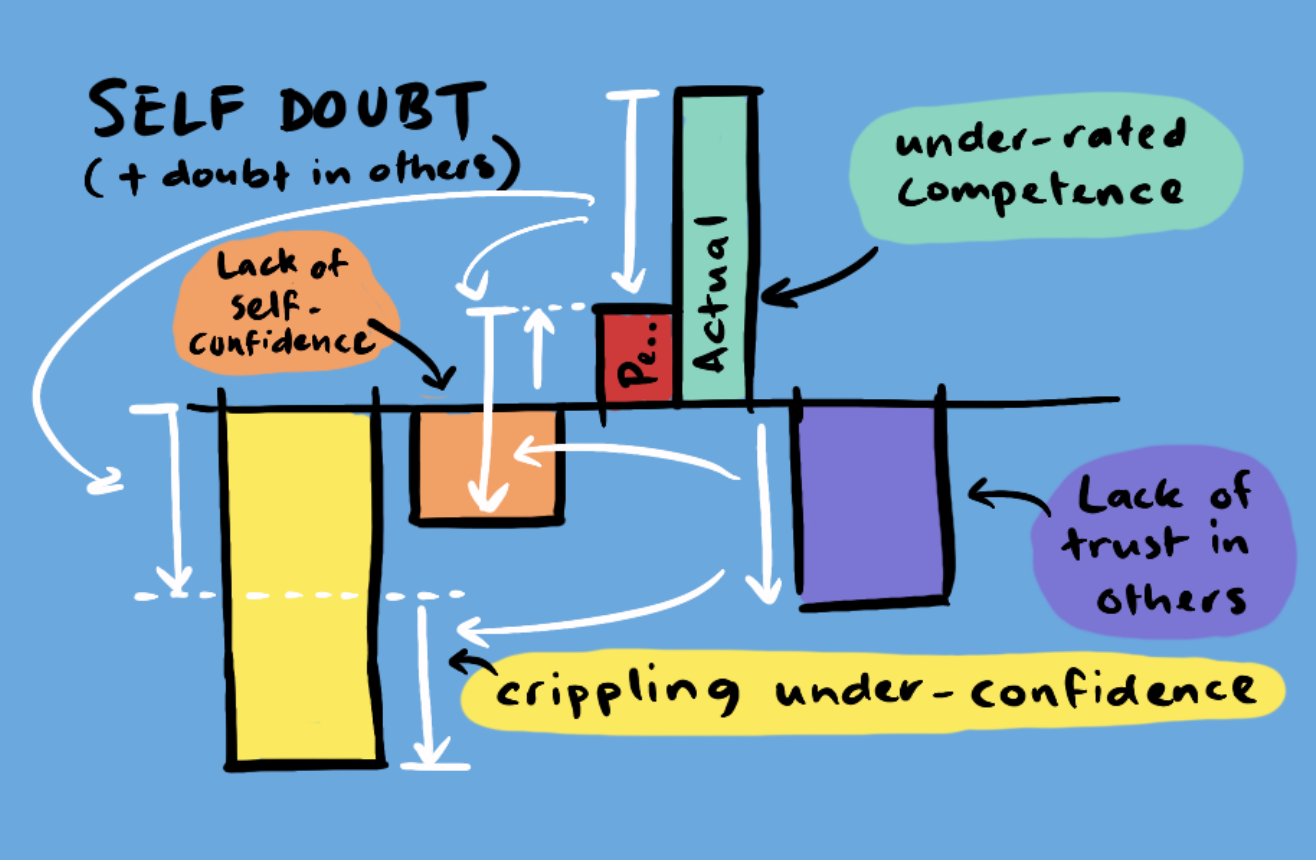 SELF DOUBT
(+ doubt in others)
under-rated
competence
Lack of
self-
confidence
Pe..
Actual
Lack of
trust in
others
crippling under-confidence